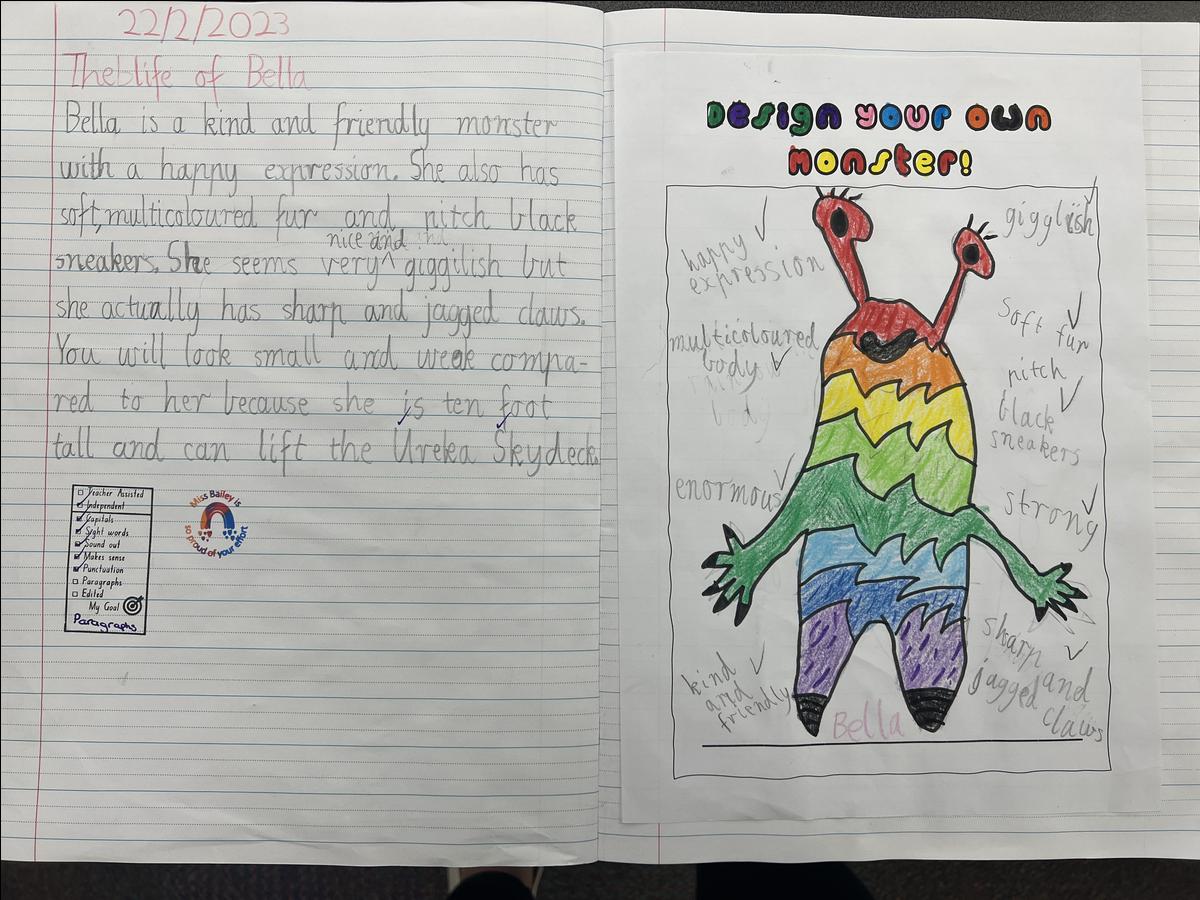 22/2/2023
The life of Bella
Bella is a kind and friendly monster
with a happy expression. She also has
soft, multicoloured fur and nitch black
sneakers. She seems very ^ giggilish but
nice and
she actually has sharp and jagged claws.
You will look small and weak compa-
red to her because she is ten foot
tall and can lift the Ureka Skydeck.
Teacher Assisted
Independent
Capitals
Sight words
Sound out
Makes sense
Punctuation
Paragraphs
Edited
My Goal
Paragraphs
Miss Bailey is
so proud of your effort
Design your own
monster!
happy
expression
multicoloured
body
body
enormous
kind
and
friendly
gigglish
soft fur
nitch
black
sneakers
strong
sharp
and
jagged
claws
Bella